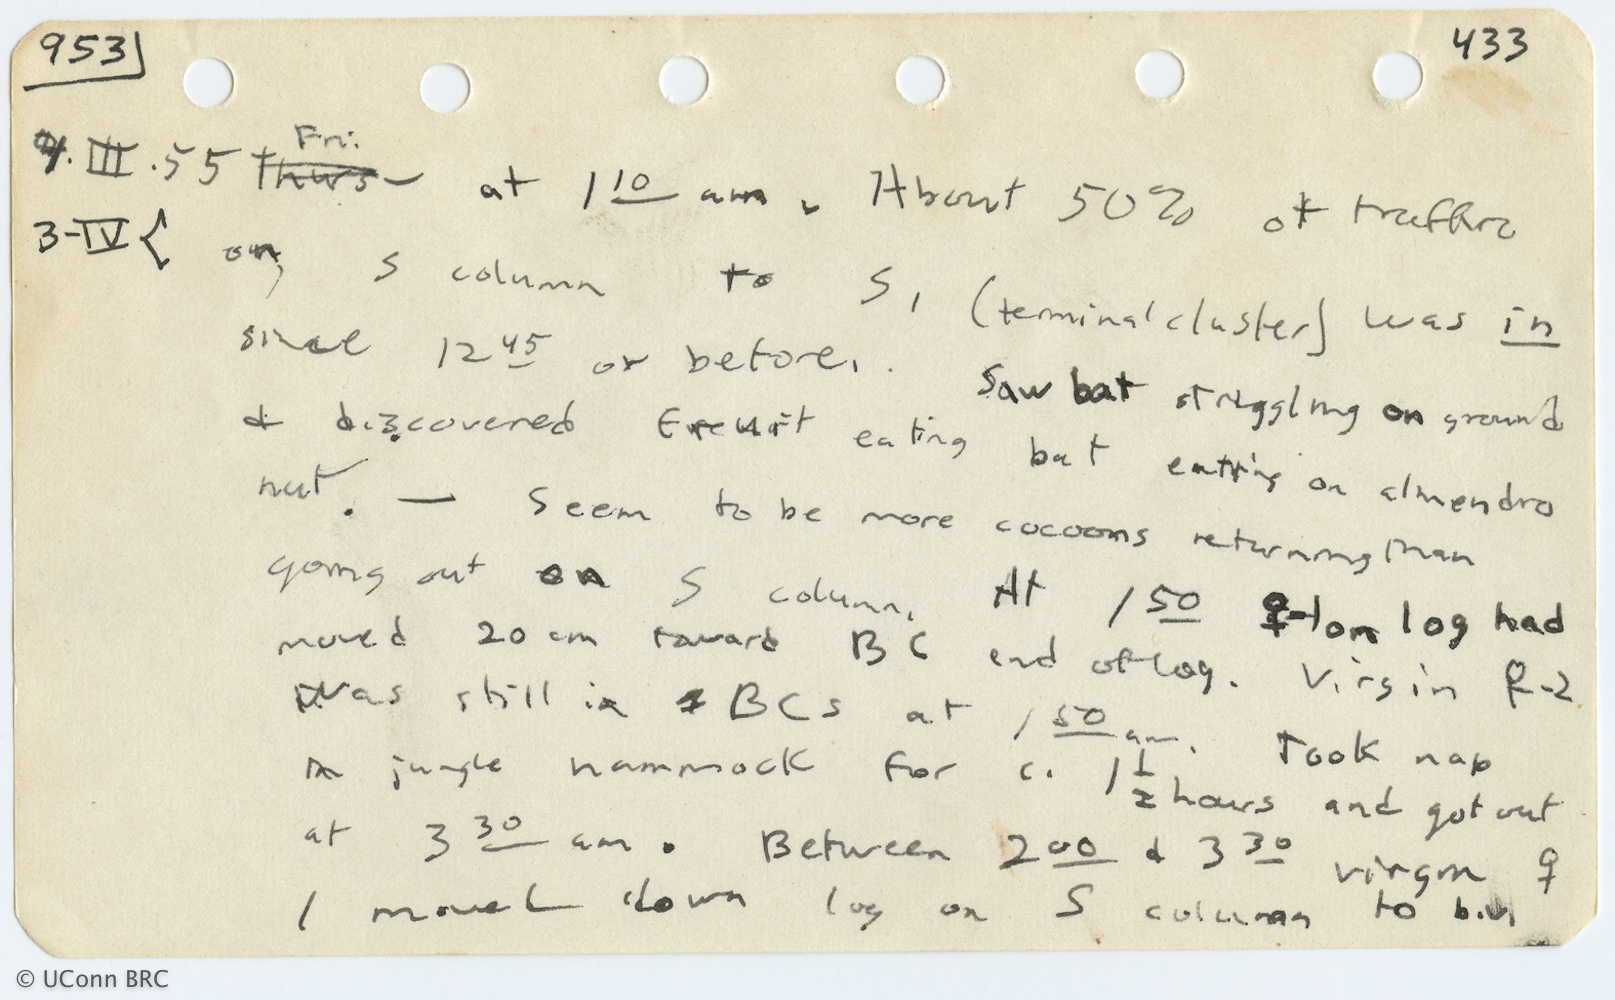 953
433
Fri.
4.III.55 Thurs at 1 10 am. About 50% of traffic
3-IV { on S column to S1 (terminal cluster) was in
since 12 45 or before. Saw bat struggling on ground
& discovered eating bat eating on almendro
nut. — Seem to be more cocoons returning than
going out on S column. At 1 50 ♀-1 on log had
moved 20 cm toward BC end of log. Virgin ♀-2
was still in BCs at 1 50 am. Took nap
in jungle hammock for c. 1 1/2 hours and got out
at 3 30 am. Between 2 00 & 3 30 virgin ♀
1 moved down log on S column to
© UConn BRC